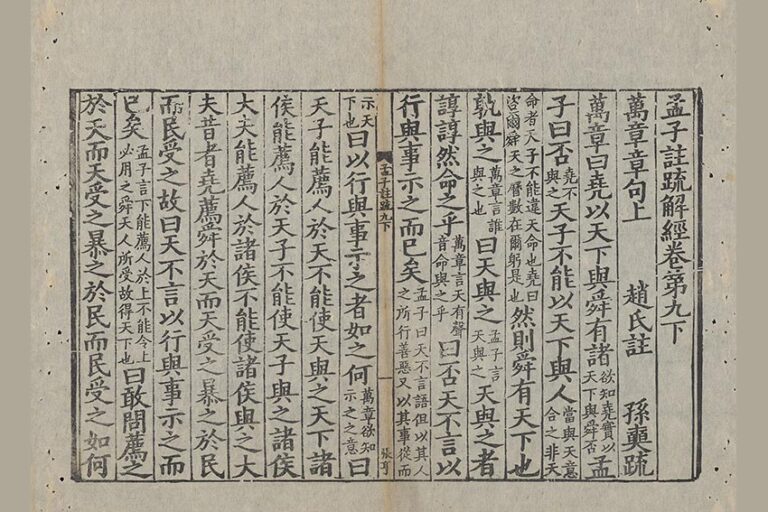 孟子註疏解經卷第九下
萬章章句上 趙氏註 孫奭疏
萬章曰堯以天下與舜有諸欲知堯實以天下與舜否孟
子曰否堯不與之天子不能以天下與人當與天意合之非天
命者天子不能違天命也堯曰咨爾舜天之曆數在爾躬是也然則舜有天下也
孰與之萬章言誰與之也曰天與之孟子言天與之天與之者
諄諄然命之乎萬章言天有聲音命與之乎曰否天不言以
行與事示之而已矣孟子曰天不言語但以其人之所行善惡又以其事從而
孟子註疏九下 一 張亨
示天下也曰以行與事示之者如之何萬章欲知示之之意曰
天子能薦人於天不能使天與之天下諸
侯能薦人於天子不能使天子與之諸侯
大夫能薦人於諸侯不能使諸侯與之大
夫昔者堯薦舜於天而天受之暴之於民
而民受之故曰天不言以行與事示之而
已矣孟子言下能薦人於上不能令上必用之舜天人所受故得天下也曰敢問薦之
於天而天受之暴之於民而民受之如何